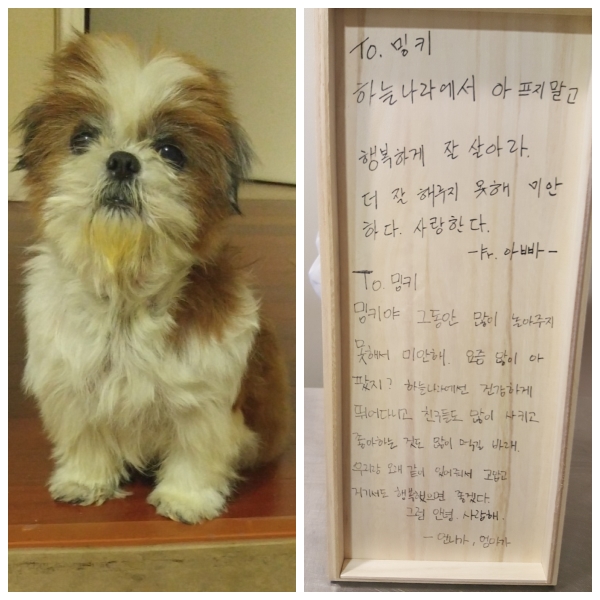 To. 밍키
하늘나라에서 아프지말고
행복하게 잘 살아라.
더 잘 해주지 못해 미안
하다. 사랑한다.
-fr. 아빠-
To. 밍키
밍키야 그동안 많이 놀아주지
못해서 미안해. 요즘 많이 아
팠지? 하늘나라에선 건강하게
뛰어다니고 친구들도 많이 사귀고
좋아하는 것도 많이 먹길 바래.
우리랑 오래 같이 있어줘서 고맙고
거기서도 행복했으면 좋겠다.
그럼 안녕. 사랑해.
- 언니가, 엄마가